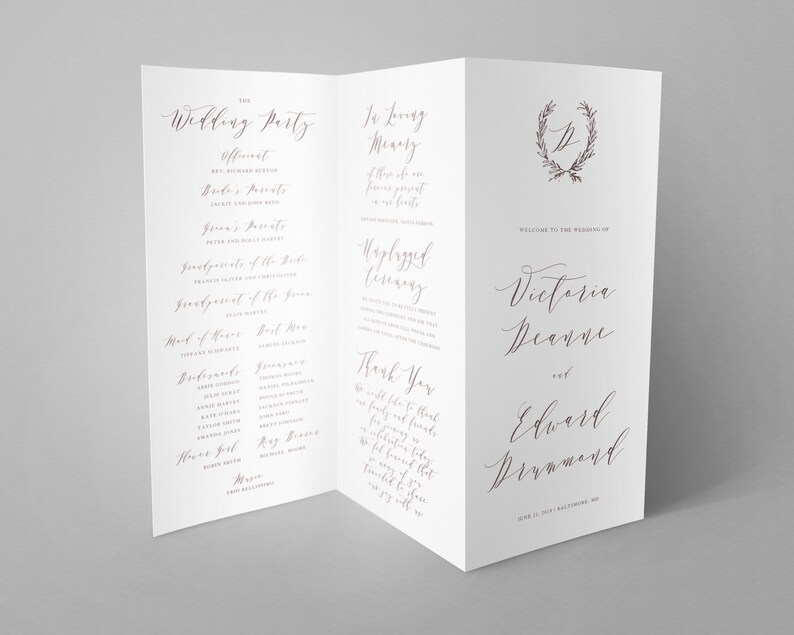 THE
Wedding Party
Officiant
REV. RICHARD BURTON
Bride's Parents
JACKIE AND JOHN REED
Groom's Parents
PETER AND HOLLY HARVEY
Grandparents of the Bride
FRANCIS OLIVER AND CHRIS OLIVER
Grandparent of the Groom
ELLIE HARVEY
Maid of Honor
TIFFANY SCHWARTZ
Best Man
SAMUEL JACKSON
Bridesmaids
ABBIE GORDON
JULIE SURAT
ANNIE HARVEY
KATE O'HARA
TAYLOR SMITH
AMANDA JONES
Groomsmen
THOMAS MOORE
DANIEL
DOUGLAS SMITH
JACKSON
JOHN SABO
BRETT JOHNSON
Flower Girl
ROBIN SMITH
Ring Bearer
MICHAEL MOORE
Music
TRIO BELLISSIMO
In Loving
Memory
of those who are
forever present
in our hearts
OLIVIA GORDON
Unplugged
Ceremony
WE INVITE YOU TO BE FULLY PRESENT
DURING THE CEREMONY. YOU ASK THAT
ALL REFRAIN FROM CELL PHONE AND
CAMERA USE UNTIL AFTER THE CEREMONY
Thank You
We would like to thank
our family and friends
for joining us
in celebration today.
We feel honored that
so many of you
traveled to share
our joy with us
D
WELCOME TO THE WEDDING OF
Victoria
Deanne
and
Edward
Drummond
JUNE 21, 2018 | BALTIMORE, MD